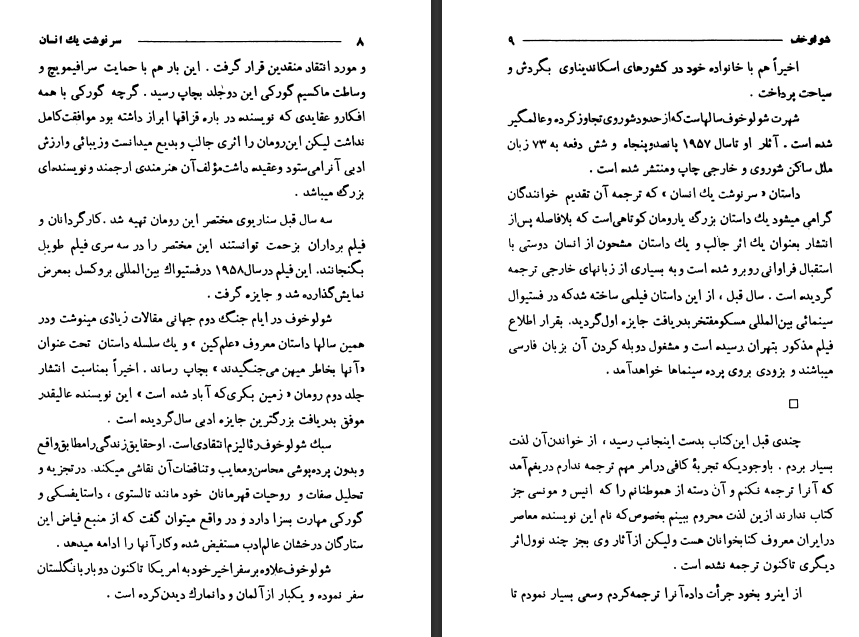 ۸ سرنوشت یك انسان
و مورد انتقاد منقدین قرار گرفت . این بار هم با حمایت سرافیمویچ و
وساطت ماکسیم گورکی این دوجلد بچاپ رسید . گرچه گورکی با همه
افکارو عقایدی که نویسنده در باره قزاقها ابراز داشته بود موافقت‌کامل
نداشت لیکن این‌رومان را اثری جالب وبدیع میدانست وزیبائی وارزش
ادبی آنرا می‌ستود وعقیده داشت‌مؤلف‌آن هنرمندی ارجمند ونویسنده‌ای
بزرگ میباشد .
سه سال قبل سناریوی مختصر این رومان تهیه شد .کارگردانان و
فیلم برداران بزحمت توانستند این مختصر را در سه سری فیلم طویل
بگنجانند. این‌فیلم درسال ۱۹۵۸ درفستیوال بین‌المللی بروکسل بمعرض
نمایش‌گذارده شد و جایزه گرفت .
شولوخوف در ایام جنگ دوم جهانی مقالات زیادی مینوشت ودر
همین سالها داستان معروف «علم‌کین » و یك سلسله داستان تحت عنوان
«آنها بخاطر میهن می‌جنگیدند » بچاپ رساند . اخیراً بمناسبت انتشار
جلد دوم رومان « زمین بکری‌که آباد شده است » این نویسنده عالیقدر
موفق بدریافت بزرگترین جایزه ادبی سال‌گردیده است .
سبك شولوخوف رئالیزم انتقادی‌است. اوحقایق‌زندگی‌رامطابق‌واقع
وبدون پرده‌پوشی محاسن‌ومعایب وتناقضات‌آن نقاشی میکند. درتجزیه و
تحلیل صفات و روحیات قهرمانان خود مانند تالستوی ، داستایفسکی و
گورکی مهارت بسزا دارد و در واقع میتوان گفت که از منبع فیاض این
ستارگان درخشان عالم‌ادب مستفیض شده وکارآنها را ادامه میدهد .
شولوخوف‌علاوه‌برسفراخیرخودبه‌امریکا تاکنون دوباربانگلستان
سفر نموده و یکبار ازآلمان و دانمارك دیدن‌کرده است .
شولوخف ۹
اخیراً هم با خانواده خود در کشورهای اسکاندیناوی بگردش و
سیاحت پرداخت .
شهرت شولوخوف‌سالهاست‌که‌ازحدودشوروی‌تجاوزکرده وعالمگیر
شده است . آثار او تاسال ۱۹۵۷ پانصدوپنجاه و شش دفعه به ۷۳ زبان
ملل ساکن شوروی و خارجی چاپ ومنتشر شده است .
داستان « سرنوشت یك انسان » که ترجمه آن تقدیم خوانندگان
گرامی میشود یك داستان بزرگ یارومان کوتاهی‌است که بلافاصله پس‌از
انتشار بعنوان یك اثر جالب و یك داستان مشحون از انسان دوستی با
استقبال فراوانی روبرو شده است وبه بسیاری از زبانهای خارجی ترجمه
گردیده است . سال قبل ، از این داستان فیلمی ساخته شدکه در فستیوال
سینمائی بین‌المللی مسکومفتخربدریافت جایزه اول‌گردید. بقرار اطلاع
فیلم مذکور بتهران رسیده است و مشغول دوبله کردن آن بزبان فارسی
میباشند و بزودی بروی پرده سینماها خواهدآمد .
چندی قبل این‌کتاب بدست اینجانب رسید ، از خواندن‌آن لذت
بسیار بردم . باوجودیکه تجربهٔ کافی درامر مهم ترجمه ندارم دریغم‌آمد
که آنرا ترجمه نکنم و آن دسته از هموطنانم را که انیس و مونسی جز
کتاب ندارند ازین لذت محروم ببینم بخصوص‌که نام این نویسنده معاصر
درایران معروف کتابخوانان هست ولیکن ازآثار وی بجز چند نوول‌اثر
دیگری تاکنون ترجمه نشده است .
از اینرو بخود جرأت داده‌آنرا ترجمه‌کردم وسعی بسیار نمودم تا